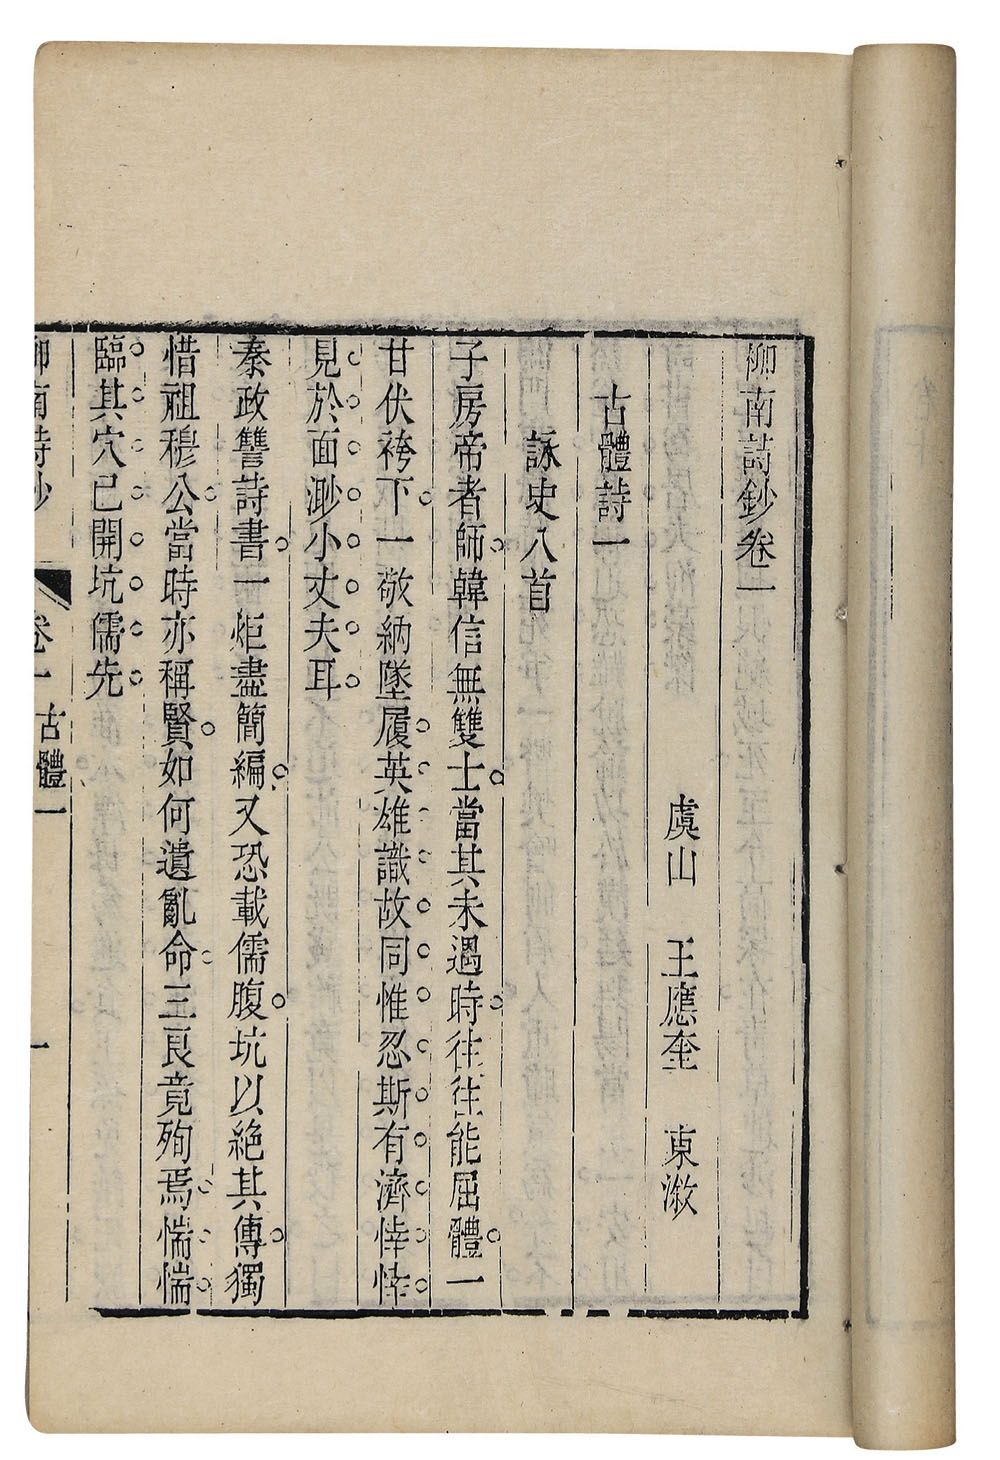 柳南詩鈔卷一
虞山 王應奎 東漵
古體詩一
詠史八首
子房帝者師韓信無雙士當其未遇時往往能屈體一
甘伏袴下一敬納墜履英雄識故同惟忍斯有濟悻悻
見於面渺小丈夫耳
秦政讐詩書一炬盡簡編又恐載儒腹坑以絕其傳獨
惜祖穆公當時亦稱賢如何遺亂命三良竟殉焉惴惴
臨其穴已開坑儒先
柳南詩鈔 卷一 古體一 一